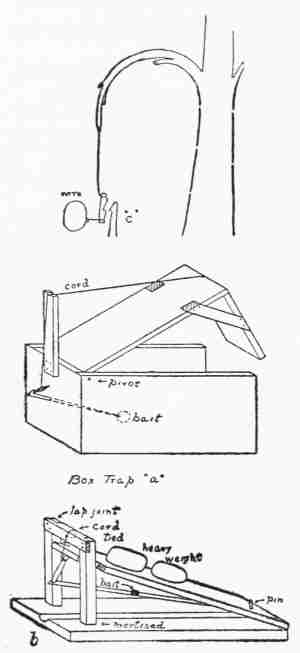 wire
"c"
cord
pivot
bait
Box Trap "a"
lap joint
cord
tied
heavy
weight
bait
pin
mortised
b